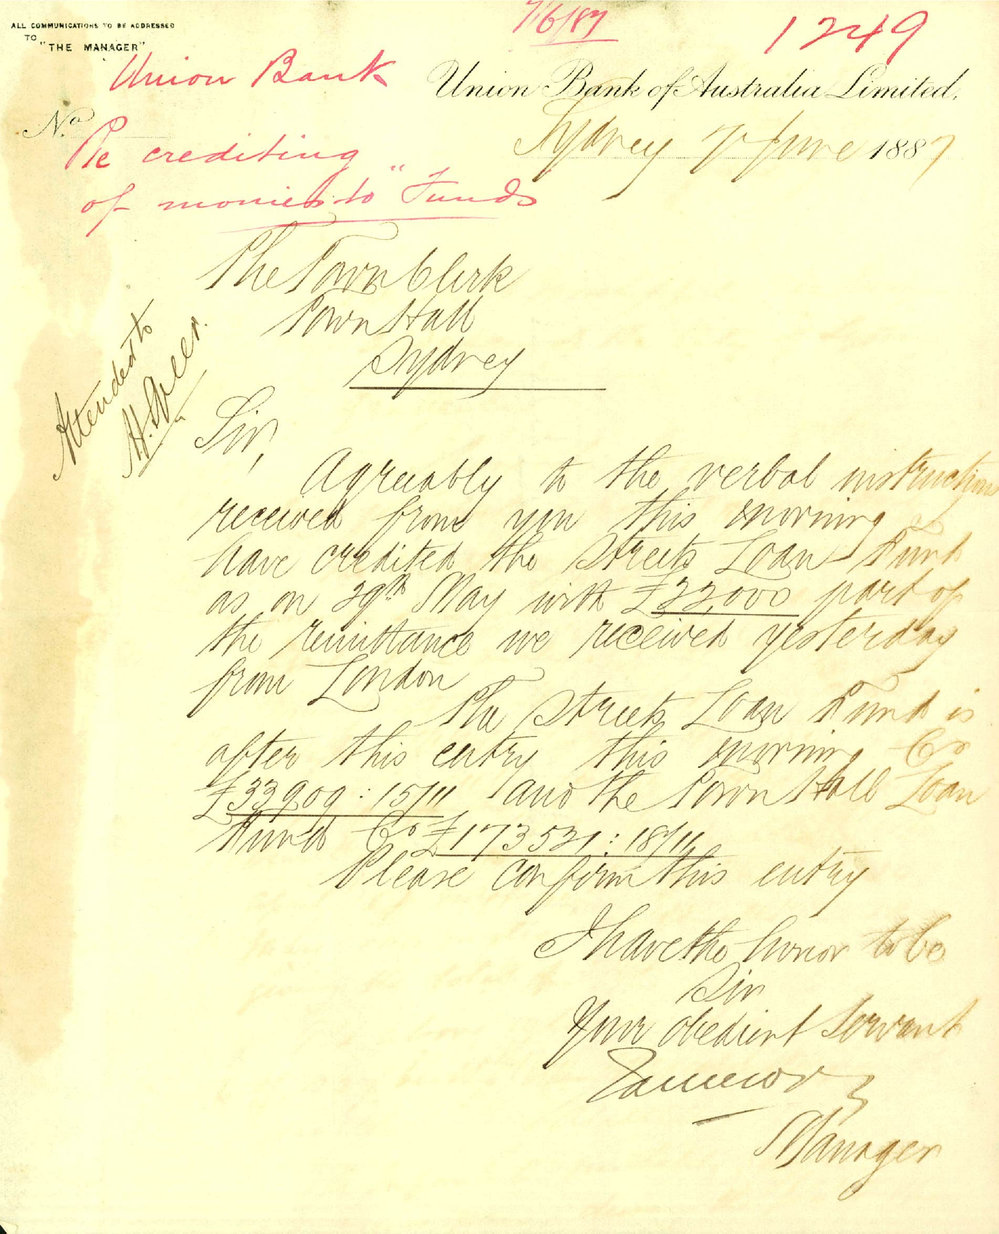 ALL COMMUNICATIONS TO BE ADDRESSED
TO
"THE MANAGER"
7/6/87
1249
Union Bank
Union Bank of Australia Limited.
No
Sydney 7 June 1887
Re crediting
of monies to "Funds
The Town Clerk
Town Hall
Sydney
Attended to
H.
Sir,
Agreeably to the verbal instructions
received from you this morning
have credited the Streets Loan Fund
as on 29th May with £22,000 part of
the remittance we received yesterday
from London
The Streets Loan Fund is
after this entry this morning Cr
£33909:15/11 and the Town Hall Loan
Fund Cr £173531:18/11
Please confirm this entry
I have the honor to be
Sir
Your obedient Servant
Manager